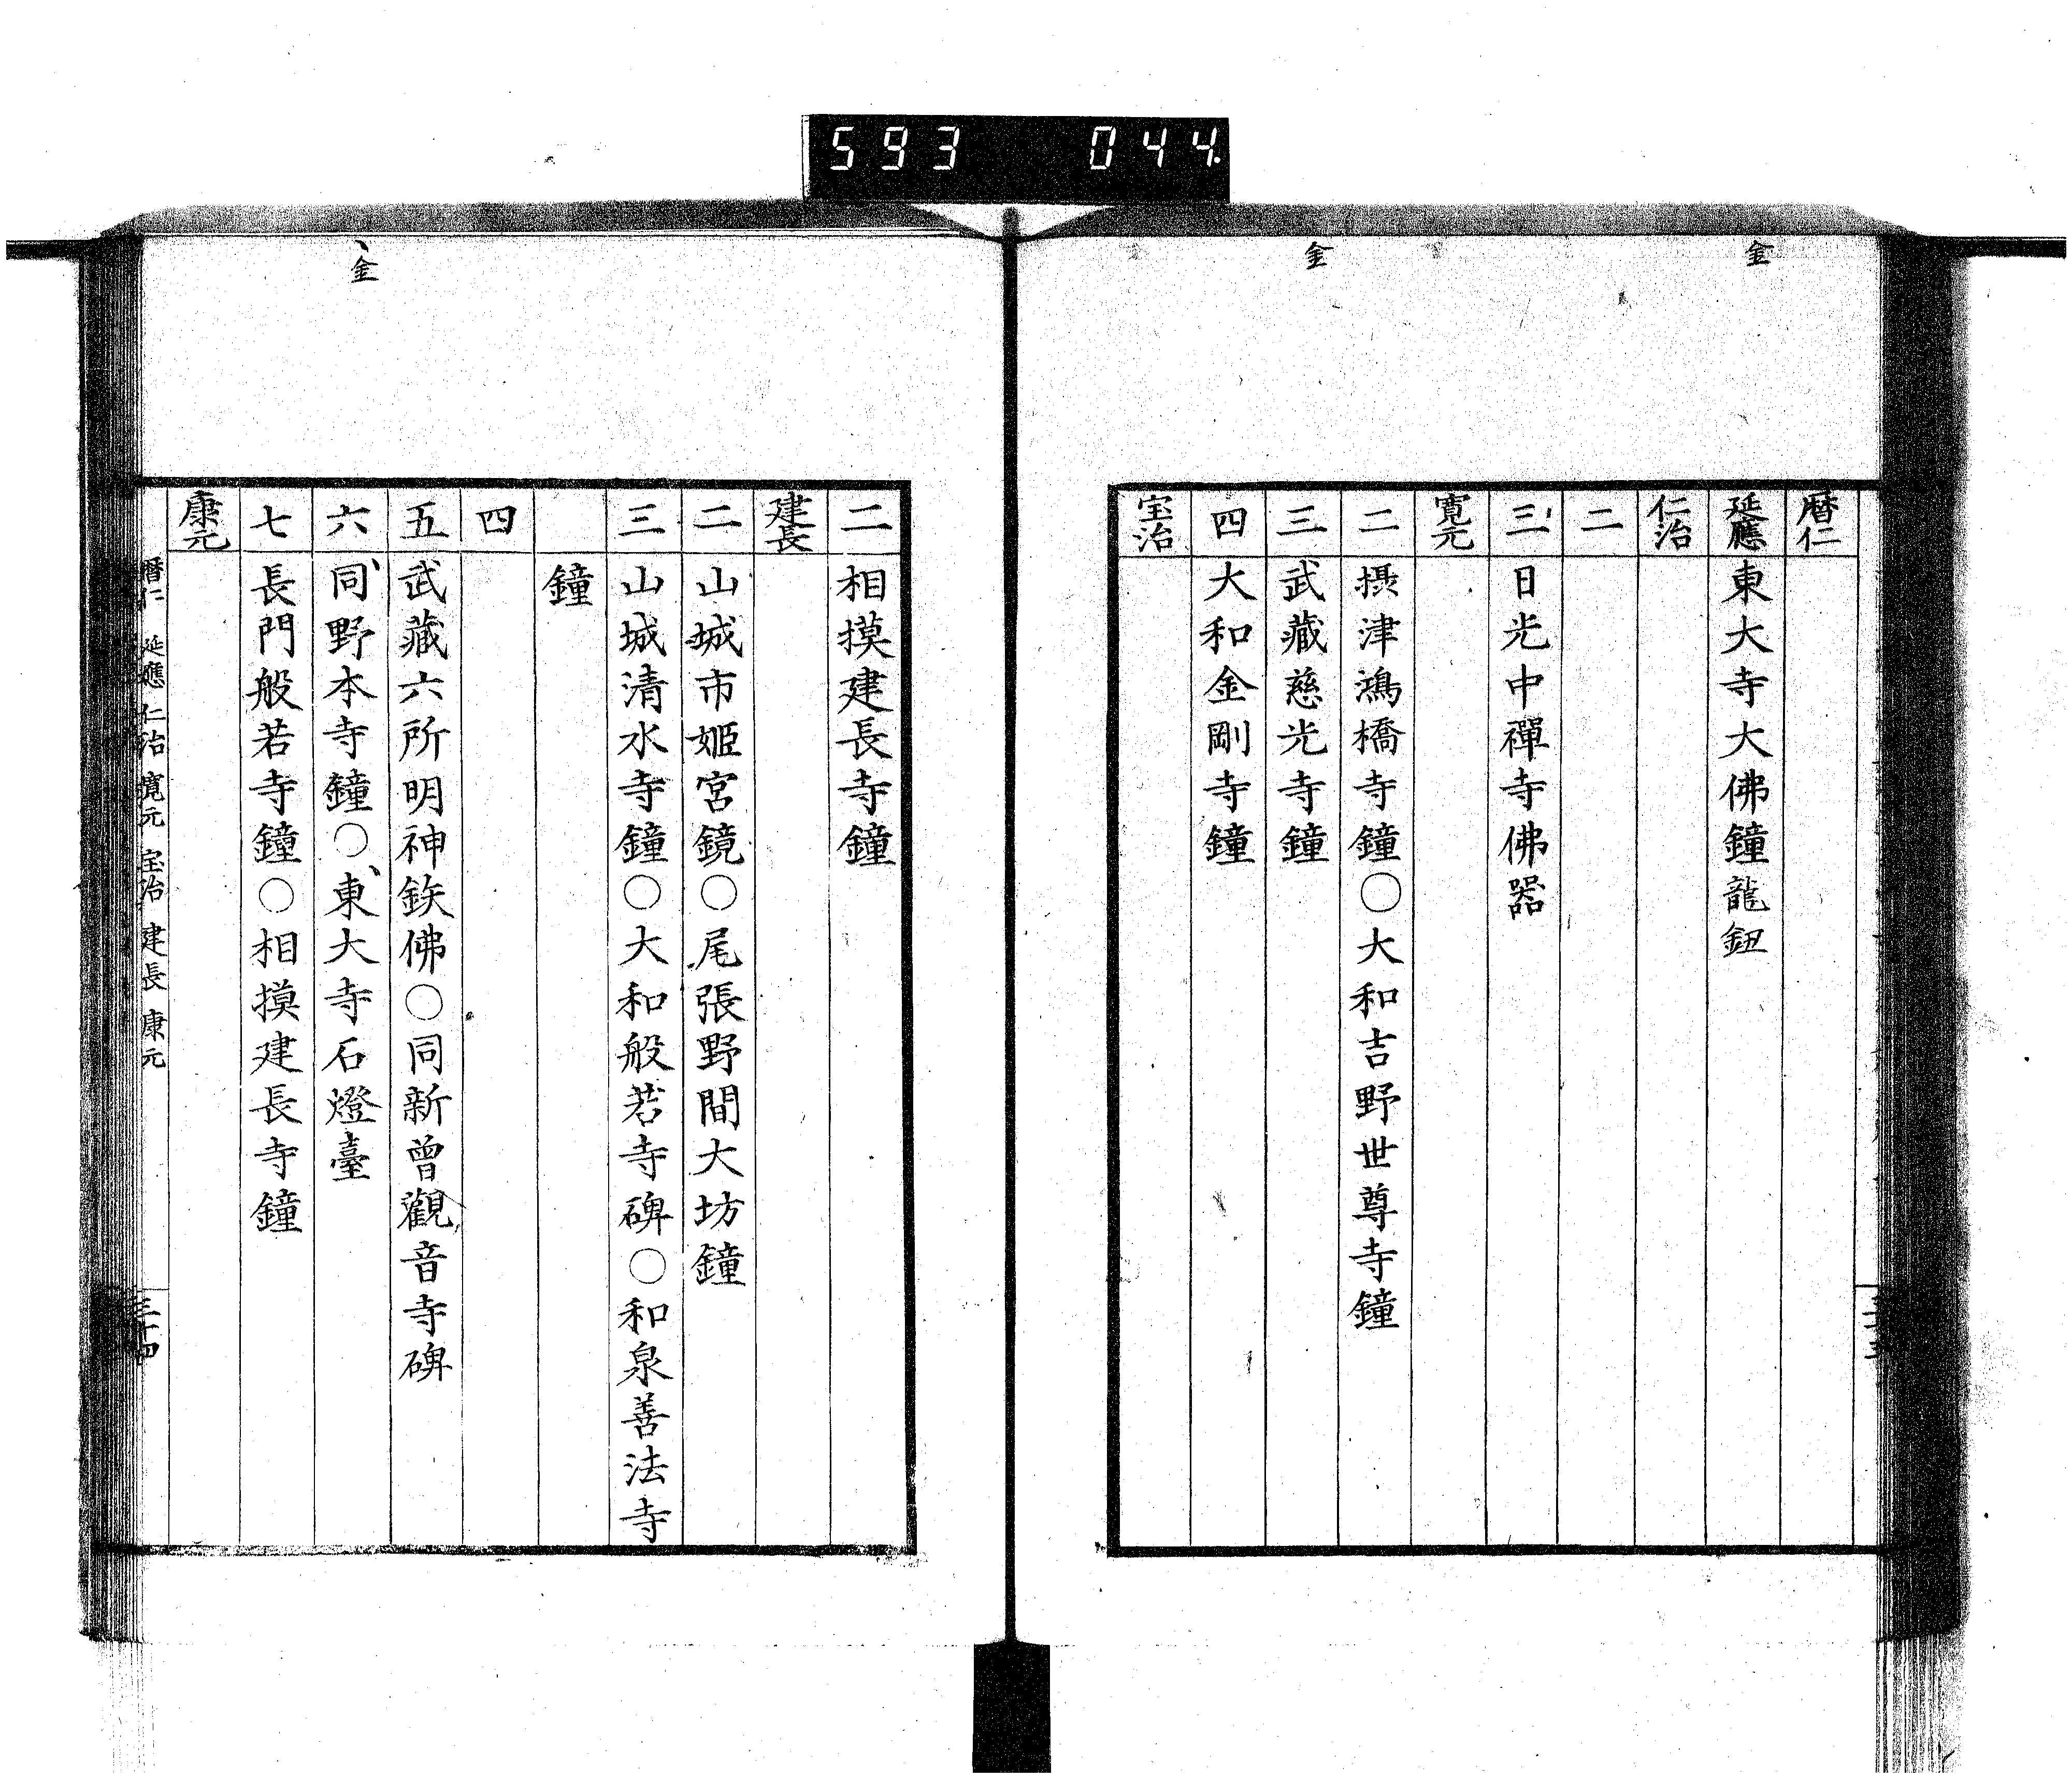 593 044
金
金
暦仁
延應 東大寺大佛鐘龍鈕
仁治
二
三 日光中禪寺佛器
寛元
二 摂津鴻橋寺鐘○大和吉野世尊寺鐘
三 武藏慈光寺鐘
四 大和金剛寺鐘
宝治
金
二 相摸建長寺鐘
建長
二 山城市姬宮鏡○尾張野間大坊鐘
三 山城清水寺鐘○大和般若寺碑○和泉善法寺
鐘
四
五 武藏六所明神鉄佛○同新曾觀音寺碑
六 同野本寺鐘○東大寺石燈臺
七 長門般若寺鐘○相摸建長寺鐘
康元
暦仁 延應 仁治 寛元 宝治 建長 康元
三十四